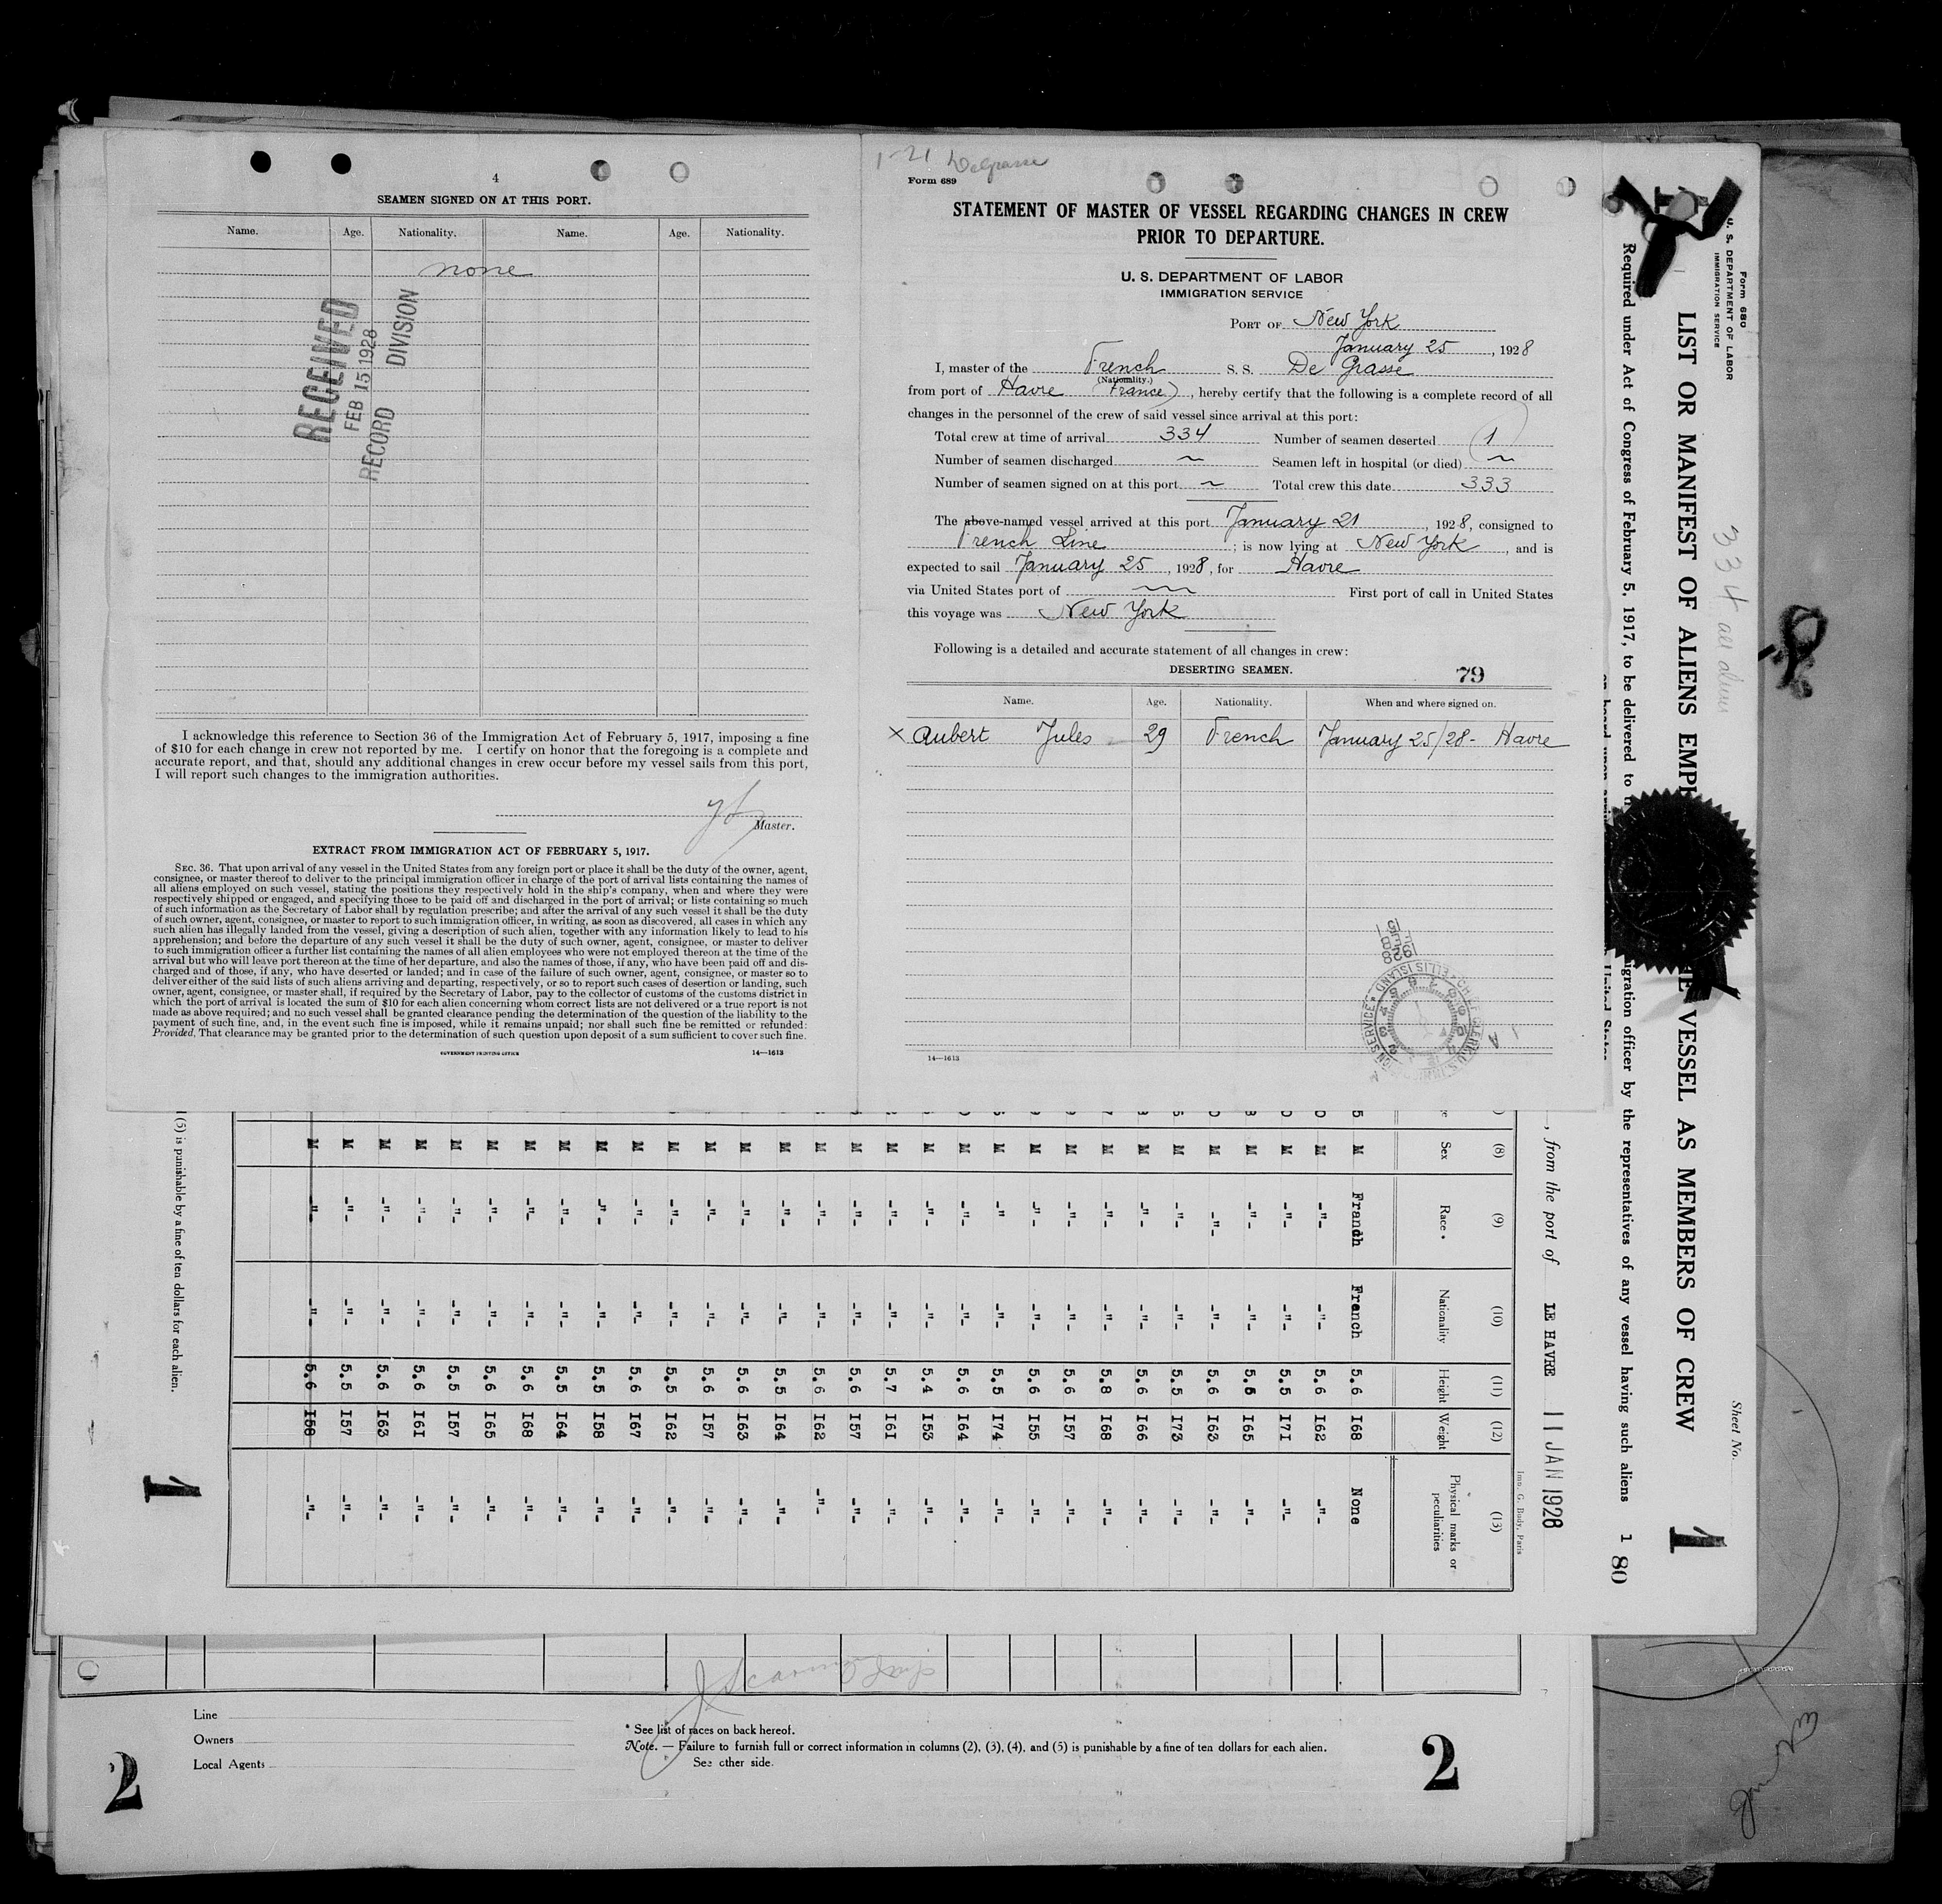 4
SEAMEN SIGNED ON AT THIS PORT.
Name. Age. Nationality. Name. Age. Nationality.
none
RECEIVED
FEB 15 1928
RECORD DIVISION
I acknowledge this reference to Section 36 of the Immigration Act of February 5, 1917, imposing a fine
of $10 for each change in crew not reported by me. I certify on honor that the foregoing is a complete and
accurate report, and that, should any additional changes in crew occur before my vessel sails from this port,
I will report such changes to the immigration authorities.
Master.
EXTRACT FROM IMMIGRATION ACT OF FEBRUARY 5, 1917.
SEC. 36. That upon arrival of any vessel in the United States from any foreign port or place it shall be the duty of the owner, agent,
consignee, or master thereof to deliver to the principal immigration officer in charge of the port of arrival lists containing the names of
all aliens employed on such vessel, stating the positions they respectively hold in the ship's company, when and where they were
respectively shipped or engaged, and specifying those to be paid off and discharged in the port of arrival; or lists containing so much
of such information as the Secretary of Labor shall by regulation prescribe; and after the arrival of any such vessel it shall be the duty
of such owner, agent, consignee, or master to report to such immigration officer, in writing, as soon as discovered, all cases in which any
such alien has illegally landed from the vessel, giving a description of such alien, together with any information likely to lead to his
apprehension; and before the departure of any such vessel it shall be the duty of such owner, agent, consignee, or master to deliver
to such immigration officer a further list containing the names of all alien employees who were not employed thereon at the time of the
arrival but who will leave port thereon at the time of her departure, and also the names of those, if any, who have been paid off and dis-
charged and of those, if any, who have deserted or landed; and in case of the failure of such owner, agent, consignee, or master so to
deliver either of the said lists of such aliens arriving and departing, respectively, or so to report such cases of desertion or landing, such
owner, agent, consignee, or master shall, if required by the Secretary of Labor, pay to the collector of customs of the customs district in
which the port of arrival is located the sum of $10 for each alien concerning whom correct lists are not delivered or a true report is not
made as above required; and no such vessel shall be granted clearance pending the determination of the question of the liability to the
payment of such fine, and, in the event such fine is imposed, while it remains unpaid; nor shall such fine be remitted or refunded:
Provided, That clearance may be granted prior to the determination of such question upon deposit of a sum sufficient to cover such fine.
GOVERNMENT PRINTING OFFICE 14—1613
1-21 Degrasse
Form 689
STATEMENT OF MASTER OF VESSEL REGARDING CHANGES IN CREW
PRIOR TO DEPARTURE.
U. S. DEPARTMENT OF LABOR
IMMIGRATION SERVICE
PORT OF New York
January 25, 1928
I, master of the French S. S. De Grasse
(Nationality.)
from port of Havre (France), hereby certify that the following is a complete record of all
changes in the personnel of the crew of said vessel since arrival at this port:
Total crew at time of arrival 334 Number of seamen deserted (1)
Number of seamen discharged ~ Seamen left in hospital (or died) ~
Number of seamen signed on at this port ~ Total crew this date 333
The above-named vessel arrived at this port January 21, 1928, consigned to
French Line; is now lying at New York, and is
expected to sail January 25, 1928, for Havre
via United States port of ~ First port of call in United States
this voyage was New York
Following is a detailed and accurate statement of all changes in crew:
DESERTING SEAMEN. 79
Name. Age. Nationality. When and where signed on.
x Aubert Jules 29 French January 25/28 - Havre
14—1613
Form 680
U. S. DEPARTMENT OF LABOR
IMMIGRATION SERVICE
LIST OR MANIFEST OF ALIENS EMPL VESSEL AS MEMBERS OF CREW
Required under Act of Congress of February 5, 1917, to be delivered to igration officer by the representatives of any vessel having such aliens
United States
334
Sheet No.
1
1 80
, from the port of LE HAVRE 11 JAN 1928
Imp. G. Body, Paris
(8) (9) (10) (11) (12) (13)
Sex Race* Nationality Height Weight Physical marks or peculiarities
M Franch French 5.6 I68 None
M -"- -"- 5.6 I62 -"-
M -"- -"- 5.5 I7I -"-
M -"- -"- 5.6 I65 -"-
M -"- -"- 5.6 I63 -"-
M -"- -"- 5.5 I73 -"-
M -"- -"- 5.6 I66 -"-
M -"- -"- 5.8 I68 -"-
M -"- -"- 5.6 I57 -"-
M -"- -"- 5.6 I55 -"-
M -"- -"- 5.5 I74 -"-
M -"- -"- 5.6 I64 -"-
M -"- -"- 5.4 I53 -"-
M -"- -"- 5.7 I6I -"-
M -"- -"- 5.6 I57 -"-
M -"- -"- 5.6 I62 -"-
M -"- -"- 5.5 I64 -"-
M -"- -"- 5.6 I63 -"-
M -"- -"- 5.6 I57 -"-
M -"- -"- 5.5 I62 -"-
M -"- -"- 5.6 I67 -"-
M -"- -"- 5.5 I58 -"-
M -"- -"- 5.5 I64 -"-
M -"- -"- 5.6 I68 -"-
M -"- -"- 5.6 I65 -"-
M -"- -"- 5.5 I57 -"-
M -"- -"- 5.6 I6I -"-
M -"- -"- 5.6 I63 -"-
M -"- -"- 5.5 I57 -"-
M -"- -"- 5.6 I58 -"-
(5) is punishable by a fine of ten dollars for each alien.
1
Line
Owners
Local Agents
* See list of races on back hereof.
Note. — Failure to furnish full or correct information in columns (2), (3), (4), and (5) is punishable by a fine of ten dollars for each alien.
See other side.
2
2